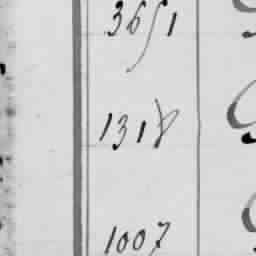 3651
1318
1007